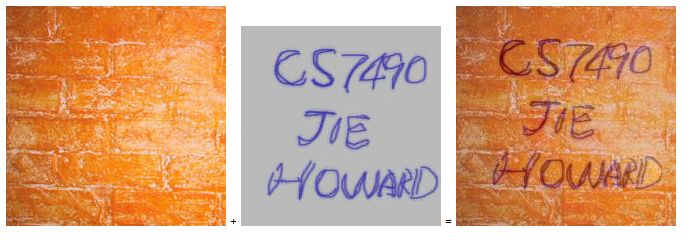 CS7490
JIE
HOWARD
+
=
CS7490
JIE
HOWARD